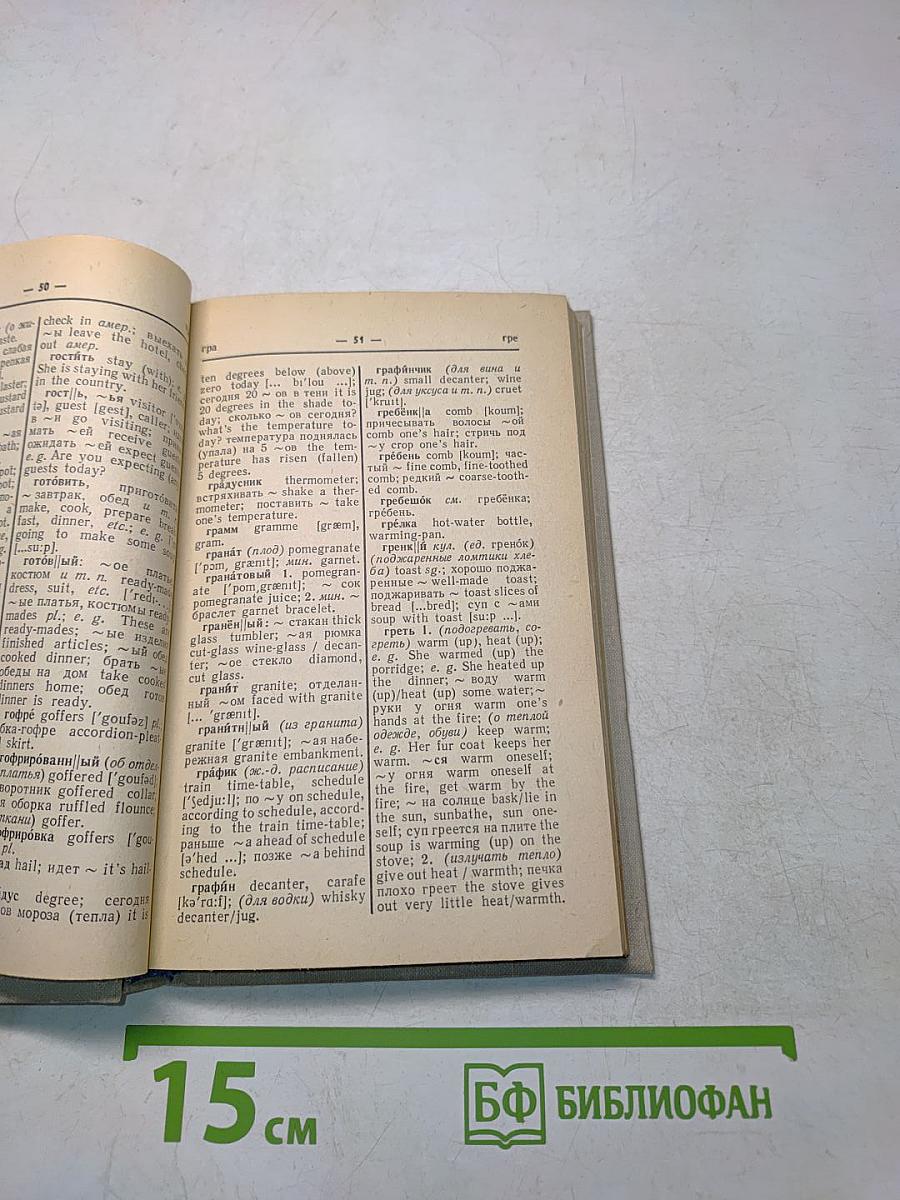 — 50 —
(о жи-
слабая
крепкая
laster;
ustard
ustard
~ая
bath;
check in амер.; выехать
~ы leave the hotel, check
out амер.
гости́ть stay (with); 
She is staying with her friends
in the country.
гост||ь, ~ья visitor
guest [gest], caller;
в ~и go visiting;
мать ~ей receive guests
ожидать ~ей expect guests
e. g. Are you expecting (any)
guests today?
гото́вить,
~ завтрак, обед и т.
make, cook, prepare
fast, dinner, etc.; e. g.
going to make some soup
[...su:p].
гото́в||ый: ~ое платье
костюм и т. п. ready-made
dress, suit, etc. ['redı-...
~ые платья, костюмы ready-
mades pl.; e. g. These are
ready-mades; ~ые изделия
finished articles; ~ый обед
cooked dinner; брать ~ые
обеды на дом take cooked
dinners home; обед готов
dinner is ready.
гофре́ goffers ['goufəz] pl.
юбка-гофре accordion-pleat-
skirt.
гофриро́ванн||ый (об отдел-
платья) goffered ['goufəd]
воротник goffered collar
оборка ruffled flounce
ткани) goffer.
гофриро́вка goffers ['gou-
pl.
град hail; идет ~ it's hail-
гра́дус degree; сегодня
ов мороза (тепла) it is
гра — 51 — гре
ten degrees below (above)
zero today [... bı'lou ...];
сегодня 20 ~ов в тени it is
20 degrees in the shade to-
day; сколько ~ов сегодня?
what's the temperature to-
day? температура поднялась
(упала) на 5 ~ов the tem-
perature has risen (fallen)
5 degrees.
гра́дусник thermometer;
встряхивать ~ shake a ther-
mometer; поставить ~ take
one's temperature.
грамм gramme [græm],
gram.
грана́т (плод) pomegranate
['pɔm‚grænıt]; мин. garnet.
грана́товый 1. pomegran-
ate ['pɔm‚grænıt]; ~ сок
pomegranate juice; 2. мин. ~
браслет garnet bracelet.
гранён||ый: ~ стакан thick
glass tumbler; ~ая рюмка
cut-glass wine-glass / decan-
ter; ~ое стекло diamond,
cut glass.
грани́т granite; отделан-
ный ~ом faced with granite
[... 'grænıt].
грани́тн||ый (из гранита)
granite ['grænıt]; ~ая набе-
режная granite embankment.
гра́фик (ж.-д. расписание)
train time-table, schedule
['ʃedju:l]; по ~у on schedule,
according to schedule, accord-
ing to the train time-table;
раньше ~а ahead of schedule
[ə'hed ...]; позже ~а behind
schedule.
графи́н decanter, carafe
[kə'rɑ:f]; (для водки) whisky
decanter/jug.
графи́нчик (для вина и
т. п.) small decanter; wine
jug; (для уксуса и т. п.) cruet
['kruıt].
гребёнк||а comb [koum];
причесывать волосы ~ой
comb one's hair; стричь под
~у crop one's hair.
гре́бень comb [koum]; час-
тый ~ fine comb, fine-toothed
comb; редкий ~ coarse-tooth-
ed comb.
гребешо́к см. гребёнка;
гре́бень.
гре́лка hot-water bottle,
warming-pan.
гренк||и́ кул. (ед. грено́к)
(поджаренные ломтики хле-
ба) toast sg.; хорошо поджа-
ренные ~ well-made toast;
поджаривать ~ toast slices of
bread [...bred]; суп с ~ами
soup with toast [su:p ...].
греть 1. (подогревать, со-
греть) warm (up), heat (up);
e. g. She warmed (up) the
porridge; e. g. She heated up
the dinner; ~ воду warm
(up)/heat (up) some water; ~
руки у огня warm one's
hands at the fire; (о теплой
одежде, обуви) keep warm;
e. g. Her fur coat keeps her
warm. ~ся warm oneself;
~у огня warm oneself at
the fire, get warm by the
fire; ~ на солнце bask/lie in
the sun, sunbathe, sun one-
self; суп греется на плите the
soup is warming (up) on the
stove; 2. (излучать тепло)
give out heat / warmth; печка
плохо греет the stove gives
out very little heat/warmth.
15 см
БФ БИБЛИОФАН